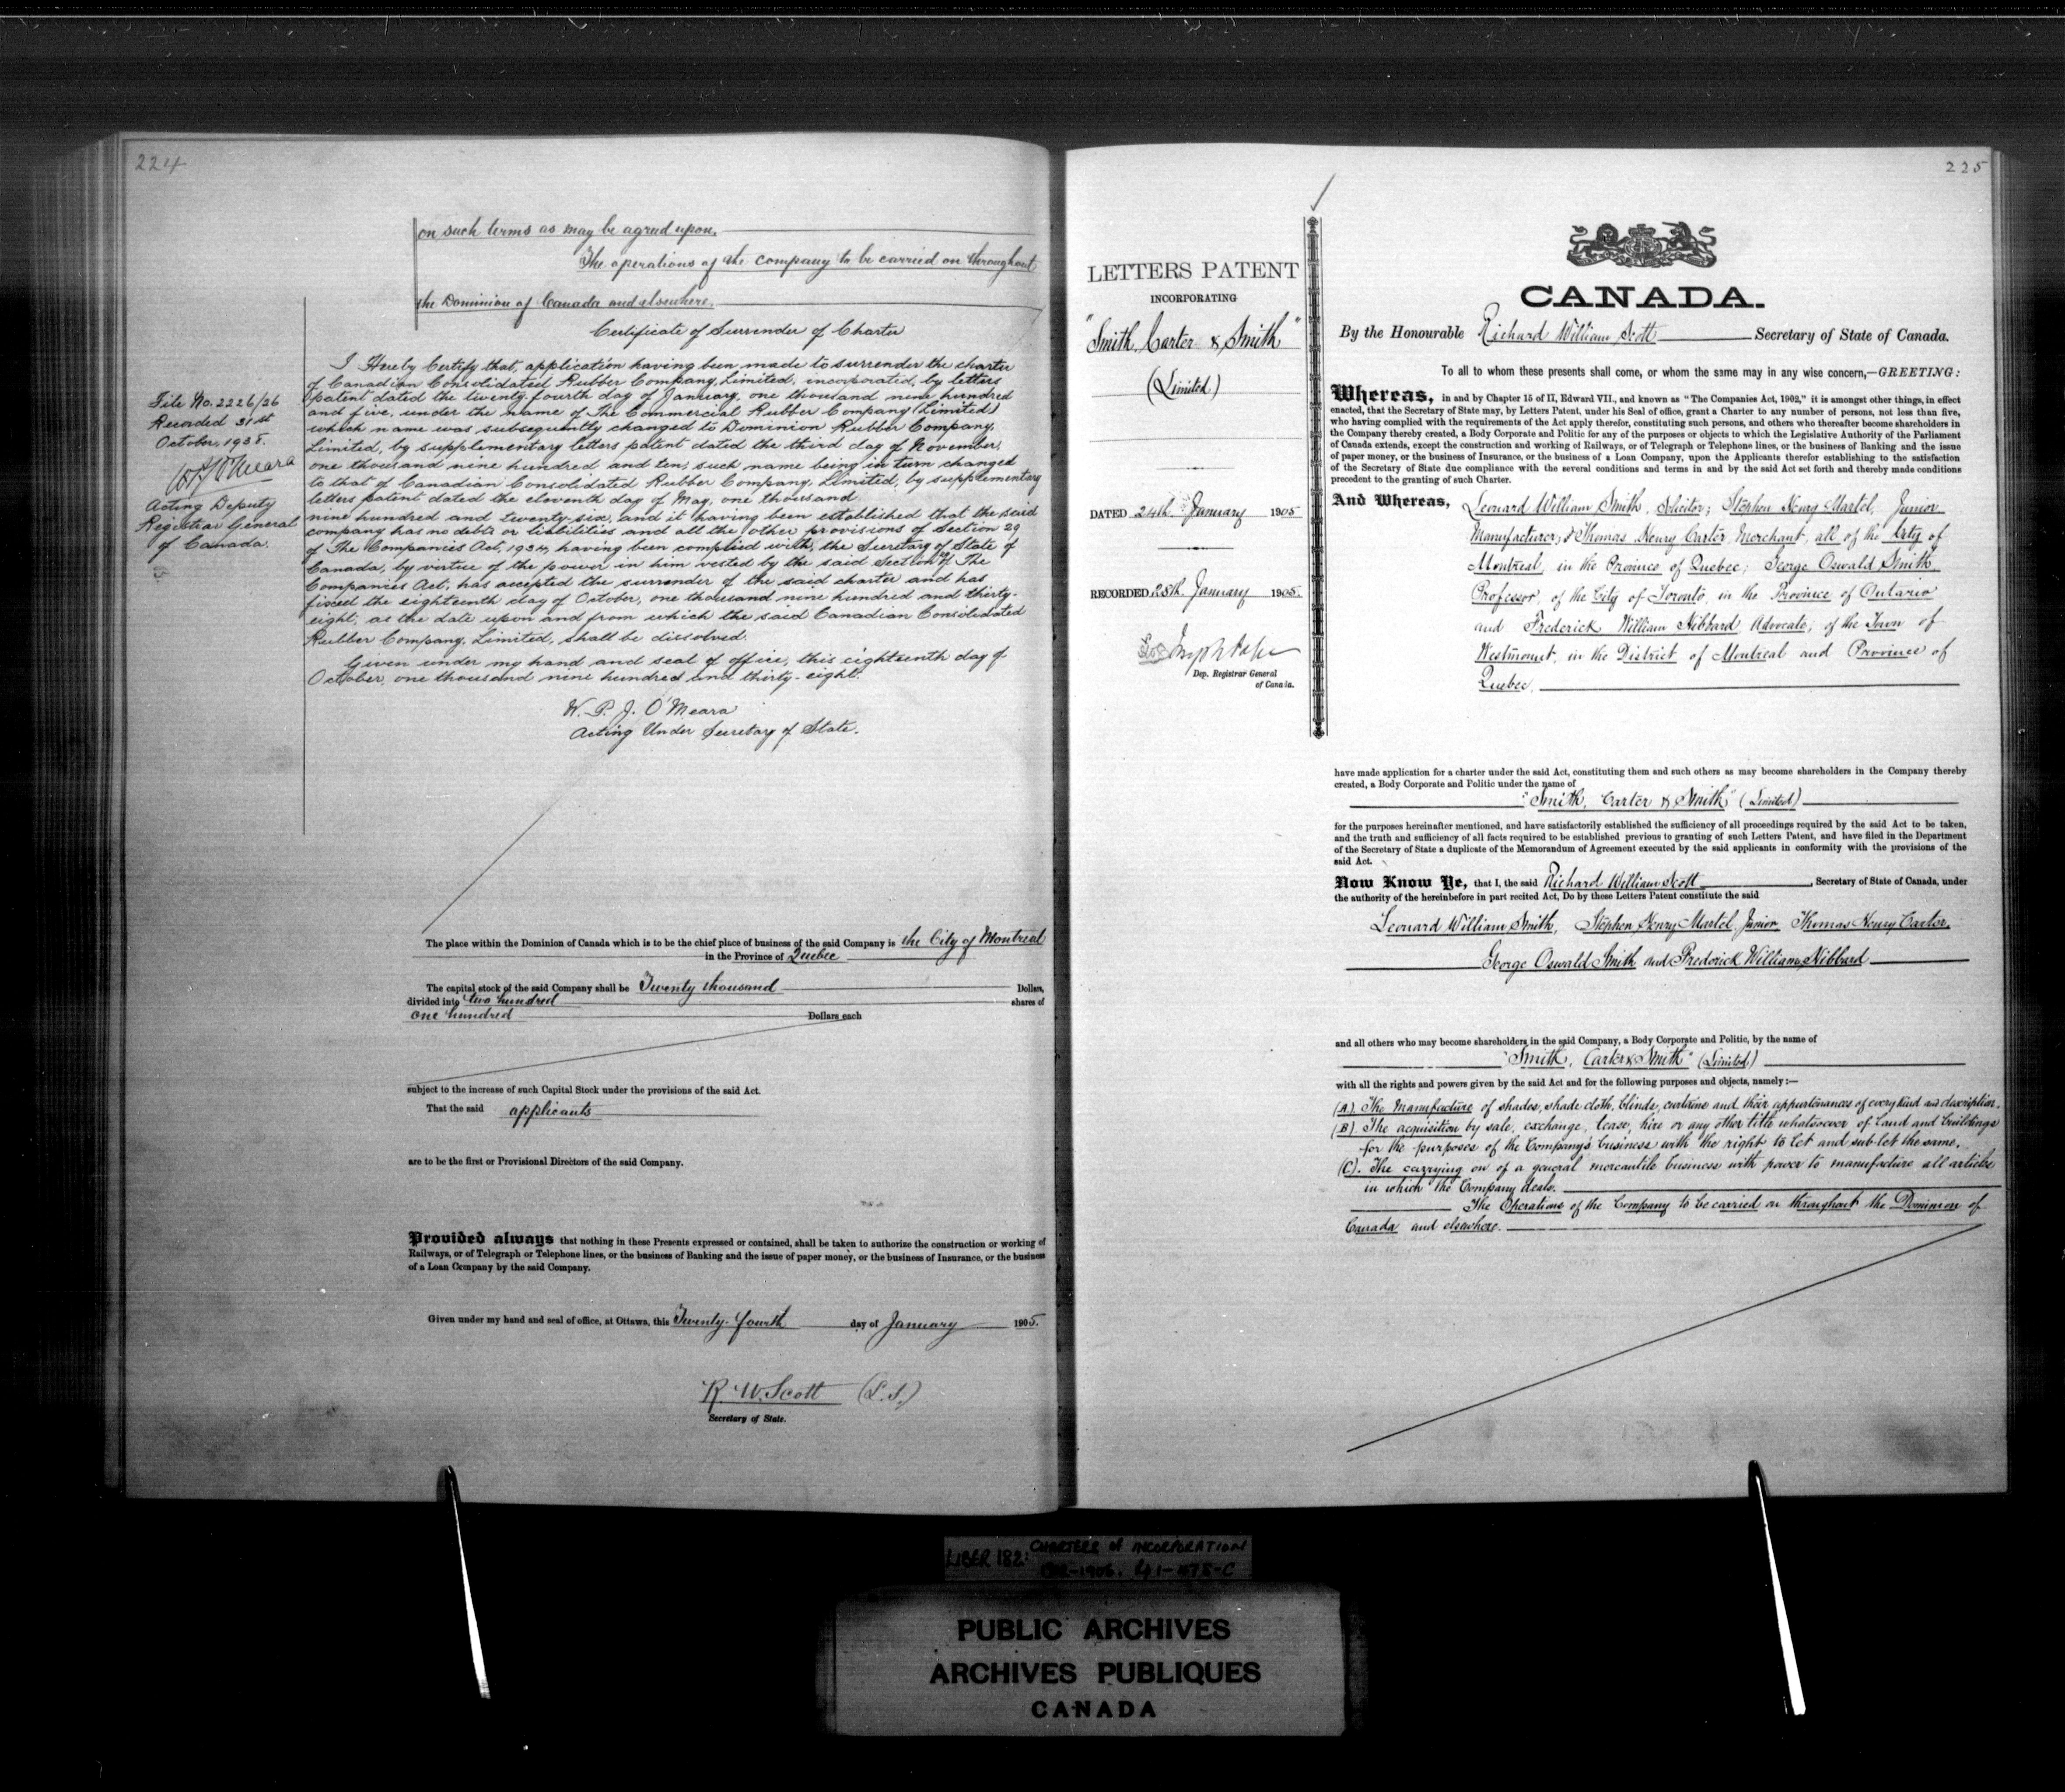 224
on such terms as may be agreed upon.
The operations of the company to be carried on throughout
the Dominion of Canada and elsewhere.
Certificate of Surrender of Charter
I Hereby Certify that, application having been made to surrender the charter
of Canadian Consolidated Rubber Company, Limited, incorporated, by letters
patent dated the twenty-fourth day of January, one thousand nine hundred
and five, under the name of The Commercial Rubber Company (Limited)
which name was subsequently changed to Dominion Rubber Company,
Limited, by supplementary letters patent dated the third day of November,
one thousand nine hundred and ten, such name being in turn changed
to that of Canadian Consolidated Rubber Company, Limited, by supplementary
letters patent dated the eleventh day of May, one thousand
nine hundred and twenty-six, and it having been established that the said
company has no debts or liabilities and all the other provisions of Section 29
of The Companies Act, 1934, having been complied with, the Secretary of State of
Canada, by virtue of the power in him vested by the said Section of The
Companies Act, has accepted the surrender of the said charter and has
fixed the eighteenth day of October, one thousand nine hundred and thirty-
eight, as the date upon and from which the said Canadian Consolidated
Rubber Company, Limited, shall be dissolved.
Given under my hand and seal of office, this eighteenth day of
October, one thousand nine hundred and thirty-eight.
W. P. J. O'Meara
Acting Under Secretary of State.
File No. 2226/26
Recorded 31st
October, 1938.
O'Meara
Acting Deputy
Registrar General
of Canada.
The place within the Dominion of Canada which is to be the chief place of business of the said Company is the City of Montreal
in the Province of Quebec
The capital stock of the said Company shall be Twenty thousand Dollars,
divided into two hundred shares of
one hundred Dollars each
subject to the increase of such Capital Stock under the provisions of the said Act.
That the said applicants
are to be the first or Provisional Directors of the said Company.
Provided always that nothing in these Presents expressed or contained, shall be taken to authorize the construction or working of
Railways, or of Telegraph or Telephone lines, or the business of Banking and the issue of paper money, or the business of Insurance, or the business
of a Loan Company by the said Company.
Given under my hand and seal of office, at Ottawa, this Twenty-fourth day of January 1905.
R. W. Scott (L.S.)
Secretary of State.
225
LETTERS PATENT
INCORPORATING
"Smith, Carter & Smith"
(Limited)
DATED 24th January 1905
RECORDED 28th January 1905.
Dep. Registrar General
of Canada.
CANADA.
By the Honourable Richard William Scott Secretary of State of Canada.
To all to whom these presents shall come, or whom the same may in any wise concern,—GREETING:
Whereas, in and by Chapter 15 of II, Edward VII., and known as "The Companies Act, 1902," it is amongst other things, in effect
enacted, that the Secretary of State may, by Letters Patent, under his Seal of office, grant a Charter to any number of persons, not less than five,
who having complied with the requirements of the Act apply therefor, constituting such persons, and others who thereafter become shareholders in
the Company thereby created, a Body Corporate and Politic for any of the purposes or objects to which the Legislative Authority of the Parliament
of Canada extends, except the construction and working of Railways, or of Telegraph or Telephone lines, or the business of Banking and the issue
of paper money, or the business of Insurance, or the business of a Loan Company, upon the Applicants therefor establishing to the satisfaction
of the Secretary of State due compliance with the several conditions and terms in and by the said Act set forth and thereby made conditions
precedent to the granting of such Charter.
And Whereas, Leonard William Smith, Solicitor; Stephen Henry Martel, Junior
Manufacturer; & Thomas Henry Carter, Merchant, all of the City of
Montreal, in the Province of Quebec; George Oswald Smith,
Professor, of the City of Toronto, in the Province of Ontario
and Frederick William Hibbard, Advocate, of the Town of
Westmount, in the District of Montreal and Province of
Quebec.
have made application for a charter under the said Act, constituting them and such others as may become shareholders in the Company thereby
created, a Body Corporate and Politic under the name of
"Smith, Carter & Smith" (Limited)
for the purposes hereinafter mentioned, and have satisfactorily established the sufficiency of all proceedings required by the said Act to be taken,
and the truth and sufficiency of all facts required to be established previous to granting of such Letters Patent, and have filed in the Department
of the Secretary of State a duplicate of the Memorandum of Agreement executed by the said applicants in conformity with the provisions of the
said Act.
Now Know Ye, that I, the said Richard William Scott, Secretary of State of Canada, under
the authority of the hereinbefore in part recited Act, Do by these Letters Patent constitute the said
Leonard William Smith, Stephen Henry Martel, Junior, Thomas Henry Carter,
George Oswald Smith and Frederick William Hibbard
and all others who may become shareholders in the said Company, a Body Corporate and Politic, by the name of
"Smith, Carter & Smith" (Limited)
with all the rights and powers given by the said Act and for the following purposes and objects, namely:—
(A). The Manufacture of shades, shade cloth, blinds, curtains and their appurtenances of every kind and description.
(B). The acquisition by sale, exchange, lease, hire or any other title whatsoever of Land and buildings
for the purposes of the Company's business with the right to let and sub-let the same.
(C). The carrying on of a general mercantile business with power to manufacture all articles
in which the Company deals.
The Operations of the Company to be carried on throughout the Dominion of
Canada and elsewhere.
LIBER 182: CHARTERS of INCORPORATION
PUBLIC ARCHIVES
ARCHIVES PUBLIQUES
CANADA